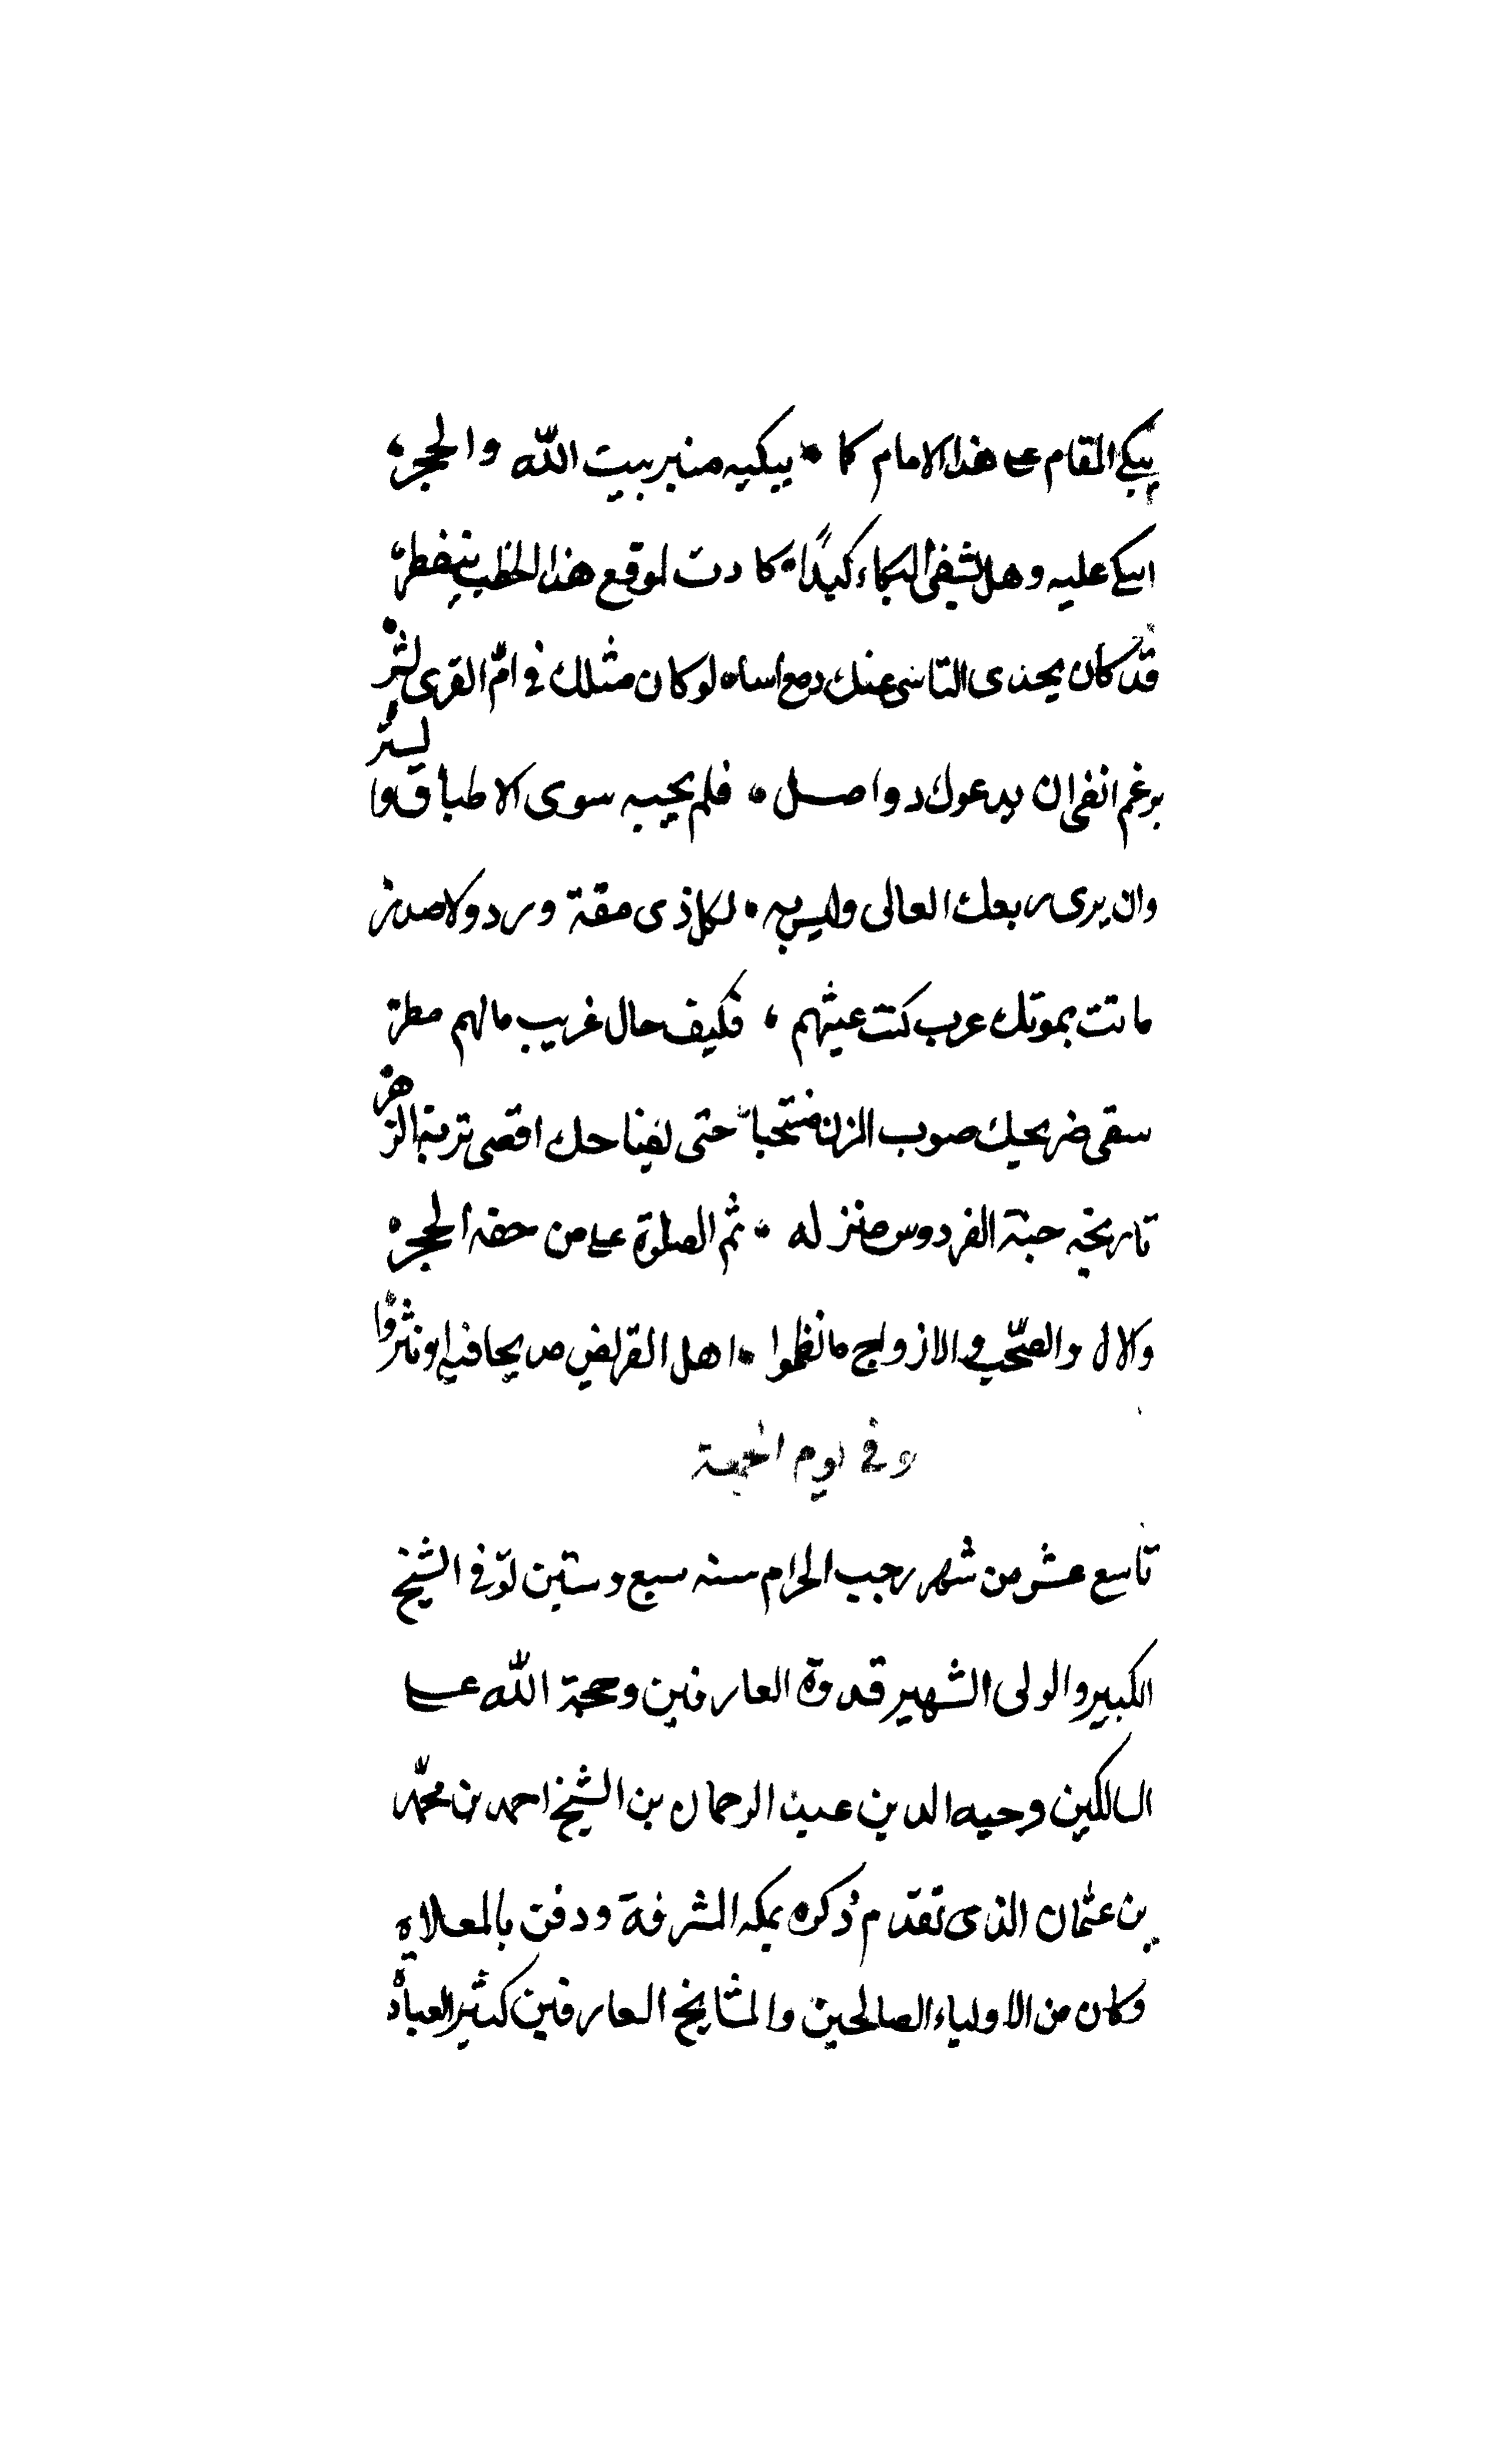 يبكي المقام على هذا الامام كما • يبكيه منبر بيت الله والحجر
ابكي عليه وهل يشفى البكاء كبدًا • كادت لوقع هذا الخطب تنفطر
قد كان يجدى التاسى عنك دمع اساه لو كان مثلك في امّ القرى بشر
برغم انفى ان يدعوك ذو امل • فلم يجيبه سوى الاطباق والستر
وان يرى ربعك العالى وليس به • لكل ذى مقة ورد ولا صدر
ماتت بموتك عرب كنت غيثهم ، فكيف حال غريب مالهم مطر
سقى ضريحك صوب المزن منتحبا • حتى يفناحك اقصى تربة الزهر
تاريخه جنة الفردوس منزله • ثم الصلوة على من حفه الحجر
والال والصّحب والازواج ما نظموا • اهل القريض مديحا فيه او نثروا
وفي يوم الجمعة
تاسع عشر من شهر رجب الحرام سنه سبع وستين توّفي الشيخ
الكبير والولى الشهير قدوة العارفين وحجة الله على
السالكين وجيه الدين عبد الرحمان بن الشيخ احمد بن محمّد
بن عثمان الذى تقدّم ذكره بمكه المشرفة ودفن بالمعلاه
وكان من الاولياء الصالحين والمشايخ العارفين كثير العبادة